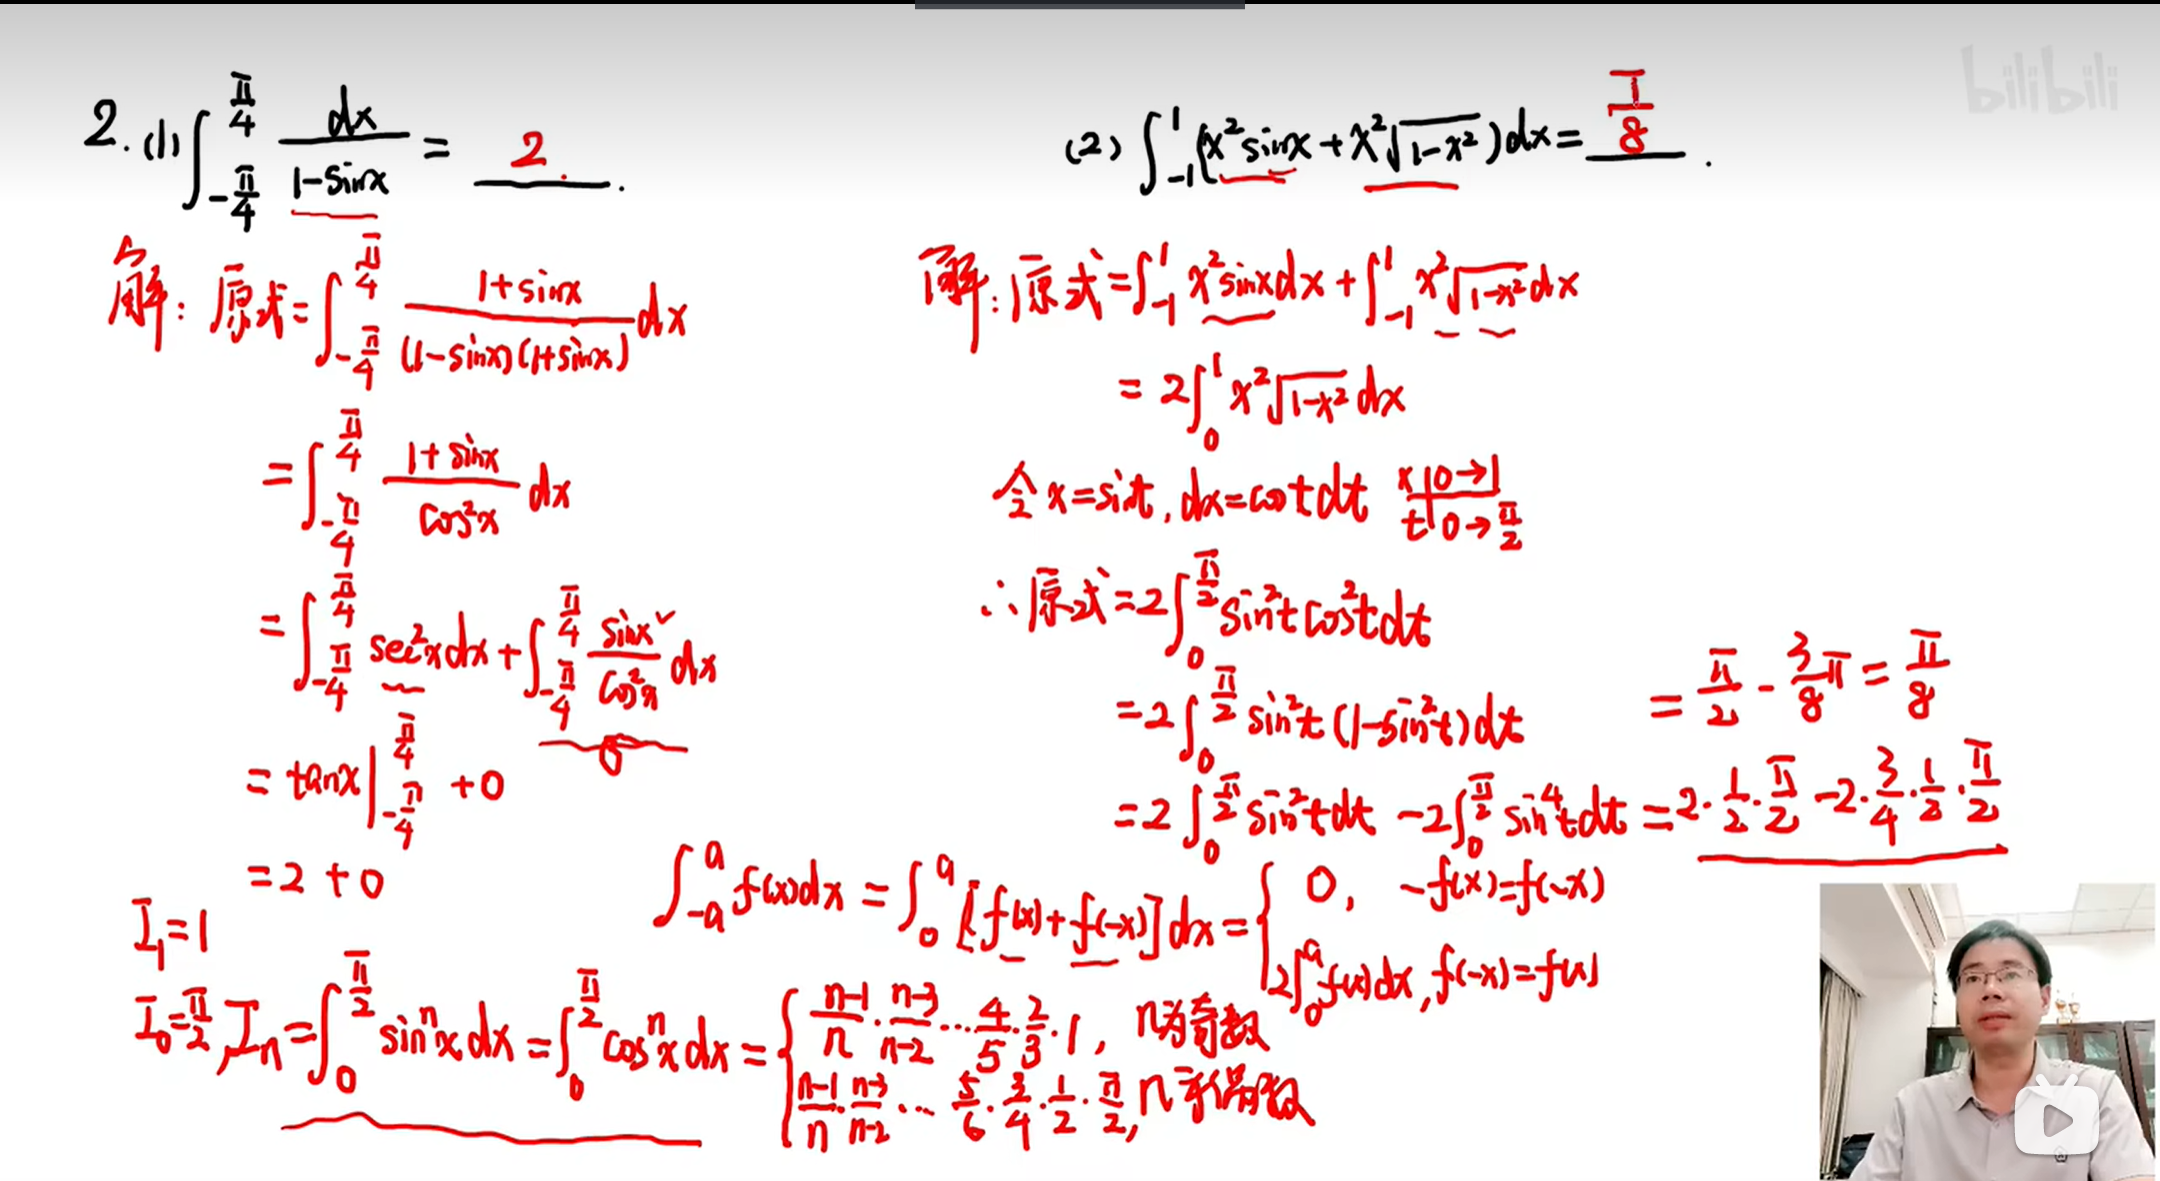 bilibili
2. (1) ∫_{-π/4}^{π/4} dx/(1-sinx) = 2.
解: 原式=∫_{-π/4}^{π/4} (1+sinx)/((1-sinx)(1+sinx)) dx
=∫_{-π/4}^{π/4} (1+sinx)/(cos²x) dx
=∫_{-π/4}^{π/4} sec²xdx+∫_{-π/4}^{π/4} sinx/cos²x dx
0
= tanx|_{-π/4}^{π/4} +0
=2+0
(2) ∫_{-1}^{1} (x²sinx+x²√(1-x²))dx= π/8.
解: 原式=∫_{-1}^{1} x²sinxdx+∫_{-1}^{1} x²√(1-x²)dx
= 2∫_{0}^{1} x²√(1-x²)dx
令 x=sint, dx=costdt x|0→1
t|0→π/2
∴原式=2∫_{0}^{π/2} sin²tcos²tdt
=2∫_{0}^{π/2} sin²t(1-sin²t)dt
=2∫_{0}^{π/2} sin²tdt -2∫_{0}^{π/2} sin⁴tdt =2·1/2·π/2-2·3/4·1/2·π/2
= π/2 - 3/8π = π/8
∫_{-a}^{a} f(x)dx = ∫_{0}^{a} [f(x)+f(-x)]dx = { 0, -f(x)=f(-x)
2∫_{0}^{a} f(x)dx, f(-x)=f(x)
I₁=1
I₀=π/2, Iₙ=∫_{0}^{π/2} sinⁿxdx=∫_{0}^{π/2} cosⁿxdx= { (n-1)/n·(n-3)/(n-2)···4/5·2/3·1, n为奇数
(n-1)/n·(n-3)/(n-2)···5/6·3/4·1/2·π/2, n为偶数